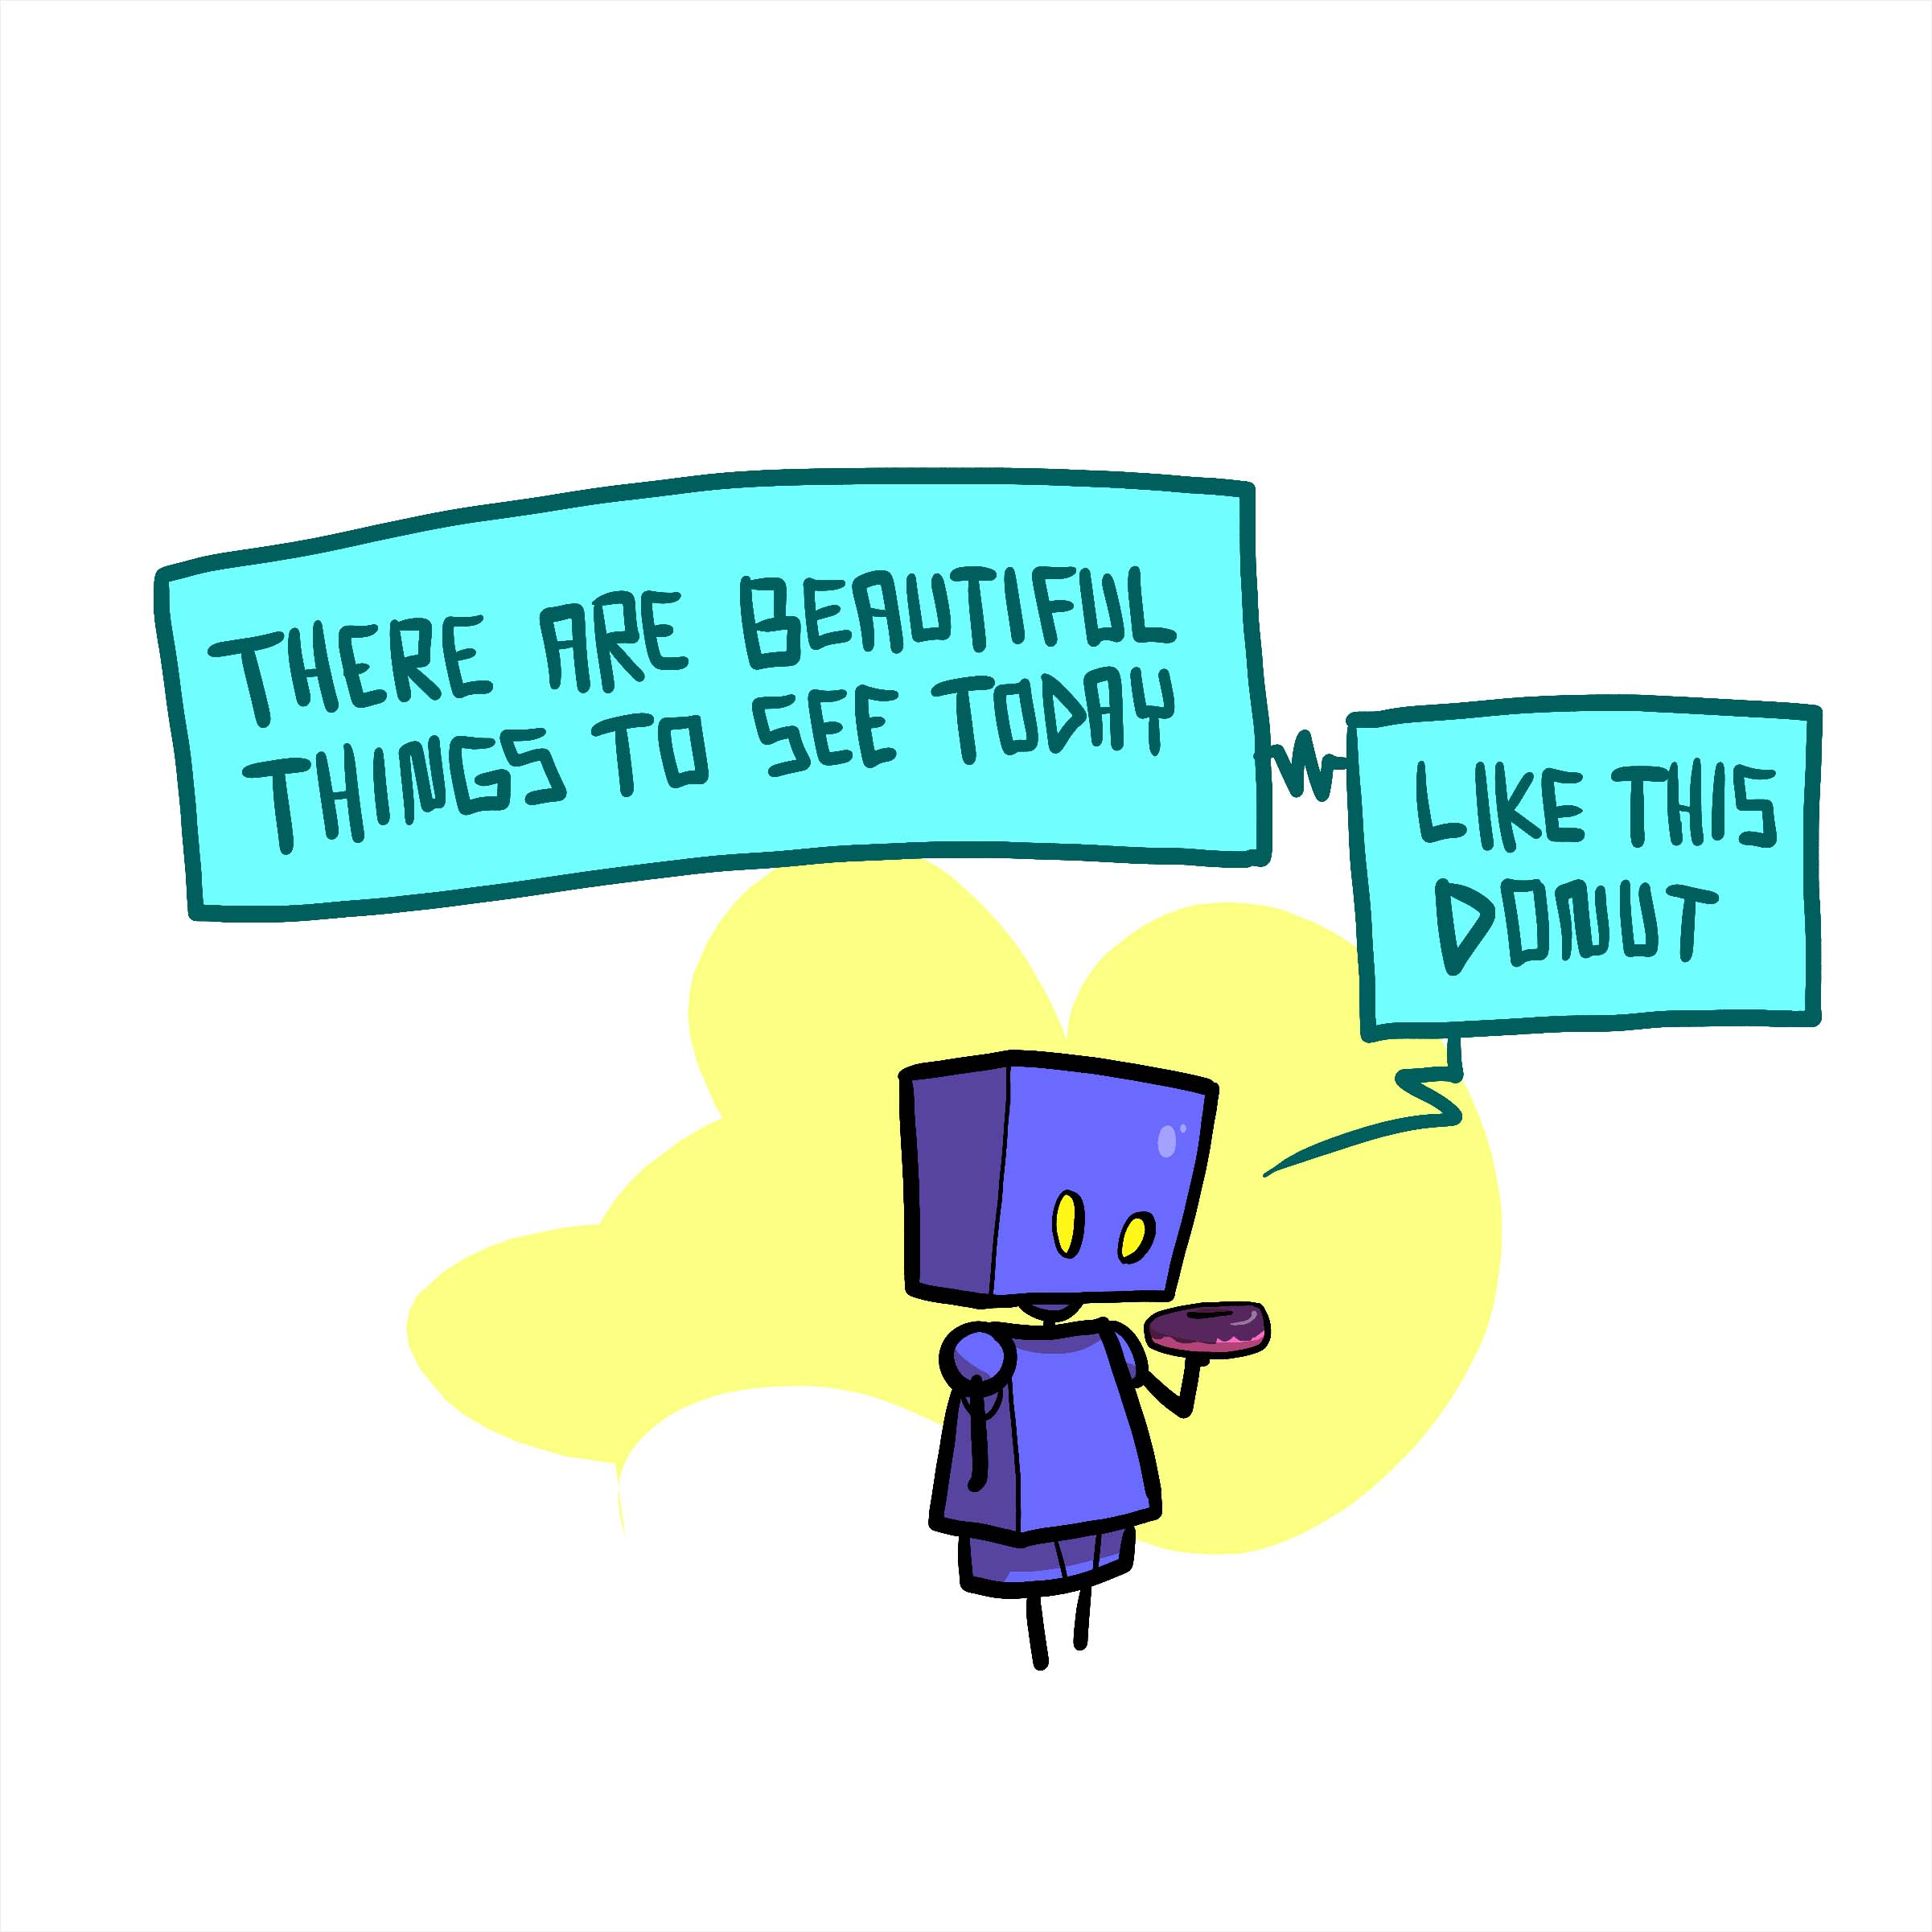 THERE ARE BEAUTIFUL
THINGS TO SEE TODAY
LIKE THIS
DONUT